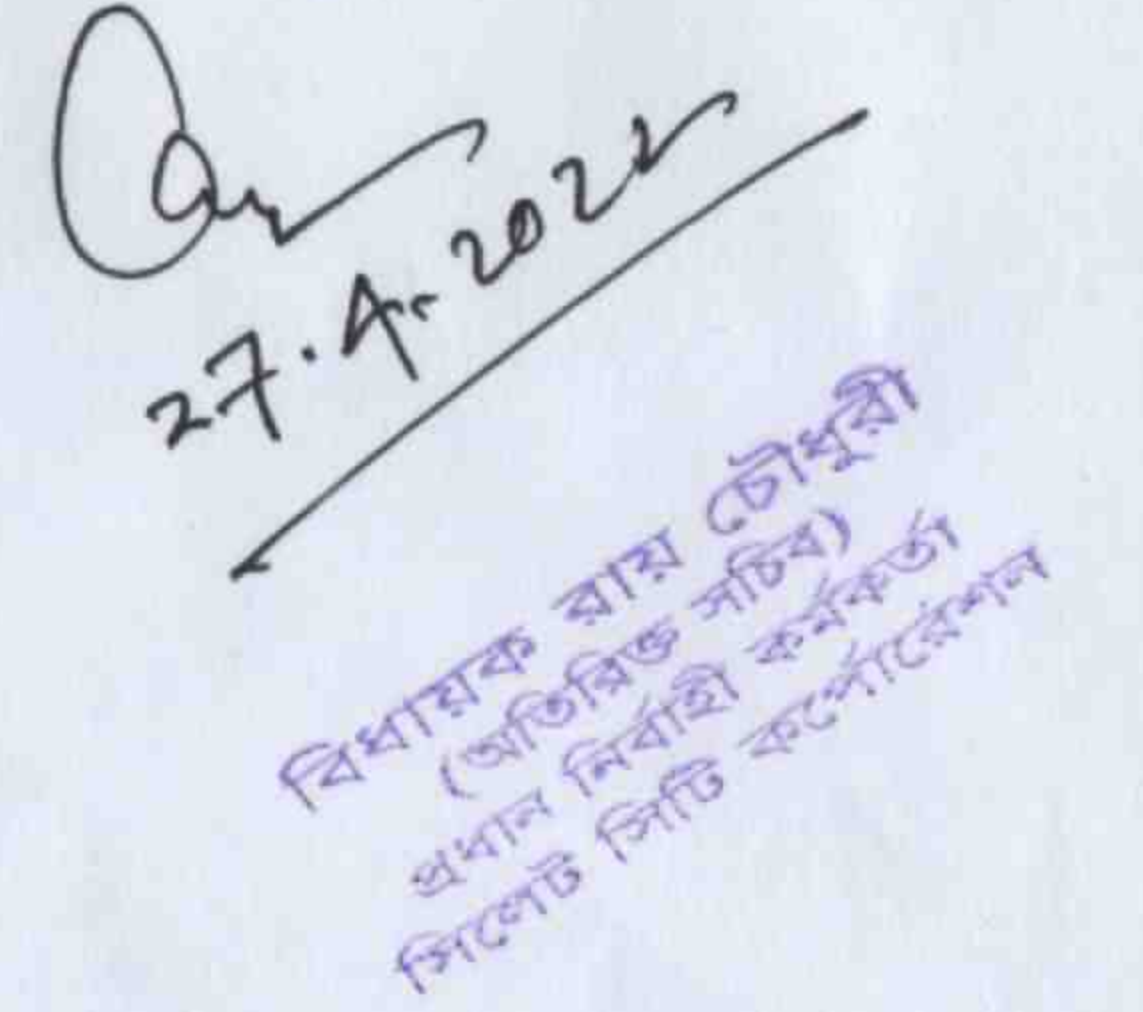 27.4.2022
বিধায়ক রায় চৌধুরী
(অতিরিক্ত সচিব)
প্রধান নির্বাহী কর্মকর্তা
সিলেট সিটি কর্পোরেশন